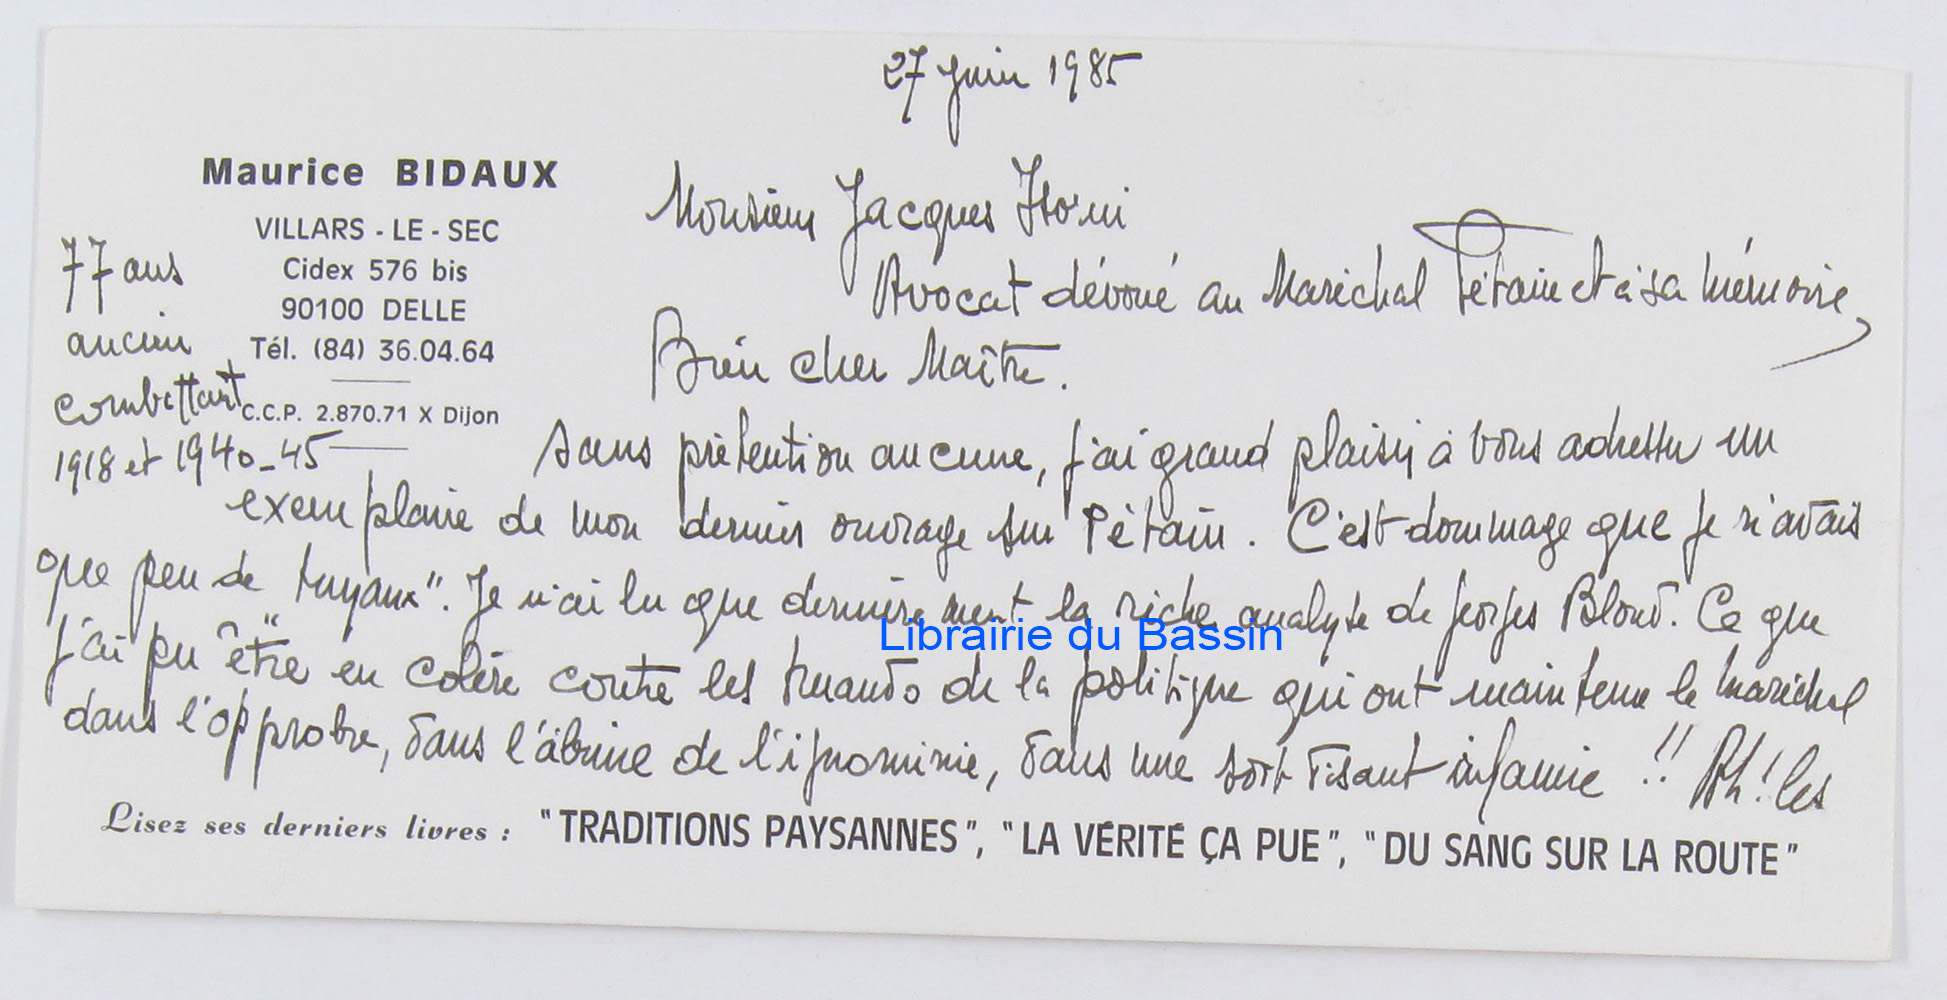 27 juin 1985
Maurice BIDAUX
VILLARS - LE - SEC
Cidex 576 bis
90100 DELLE
Tél. (84) 36.04.64
C.C.P. 2.870.71 X Dijon
77 ans
ancien
combattant
1918 et 1940-45
Monsieur Jacques Isorni
Avocat dévoué au Maréchal Pétain et à sa mémoire,
Bien cher Maître.
Sans prétention aucune, j'ai grand plaisir à vous adresser un
exemplaire de mon dernier ouvrage sur Pétain. C'est dommage que je n'avais
que peu de "tuyaux". Je n'ai lu que dernièrement la riche analyse de Georges Blond. Ce que
j'ai pu être en colère contre les truands de la politique qui ont maintenu le Maréchal
dans l'opprobre, dans l'abîme de l'ignominie, dans une soit disant infamie !! Ah! les
Librairie du Bassin
Lisez ses derniers livres : "TRADITIONS PAYSANNES", "LA VÉRITÉ ÇA PUE", "DU SANG SUR LA ROUTE"